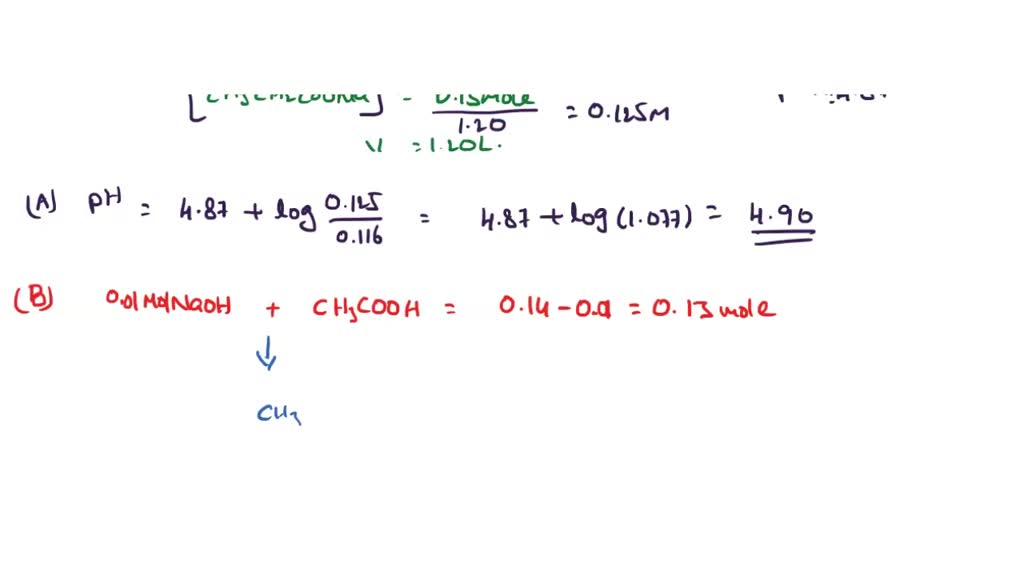 = 0.15mole / 1.20 = 0.125M
V = 1.20L.
(A) pH = 4.87 + log 0.125 / 0.116 = 4.87 + log (1.077) = 4.90
(B) 0.01 Mol NaOH + CH3COOH = 0.14 - 0.01 = 0.13 mole
↓
CH3